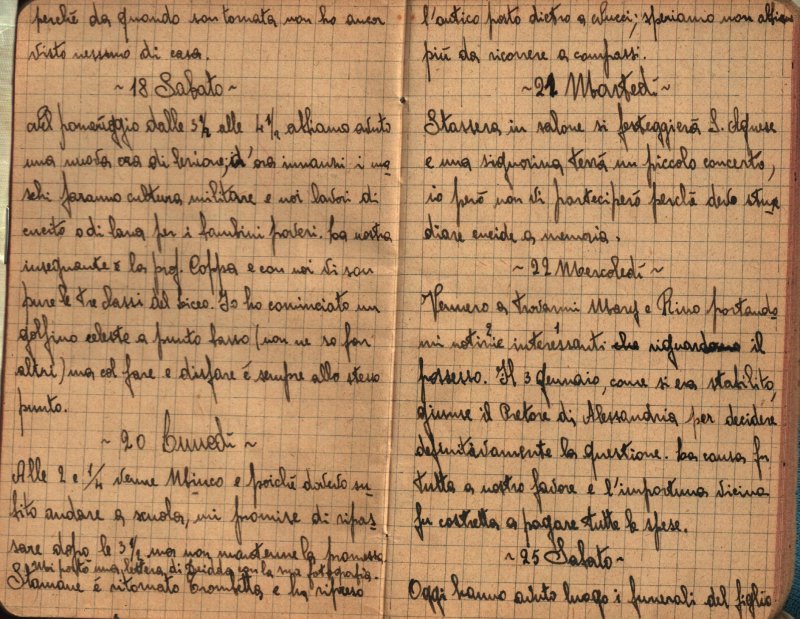 perché da quando son tornata non ho ancor
visto nessuno di casa.
~ 18 Sabato ~
Al pomeriggio dalle 3½ alle 4½ abbiamo avuto
una nuova ora di lezione; d'ora innanzi i ma-
schi faranno cultura militare e noi lavori di
cucito o di lana per i bambini poveri. La nostra
insegnante è la prof. Coppa e con noi vi son
pure le tre classi del liceo. Io ho cominciato un
golfino celeste a punto basso (non ne so far
altri) ma col fare e disfare è sempre allo stesso
punto.
~ 20 Lunedì ~
Alle 2 e ¼ venne Minco e poiché dovevo su-
bito andare a scuola, mi promise di ripas-
sare dopo le 3½ ma non mantenne la promessa.
Mi portò una lettera di con la sua fotografia.
Stamane è ritornato Trombetta e ha ripreso
l'antico posto dietro a ; speriamo non abbiamo
più da ricorrere a compassi.
~ 21 Martedì ~
Stassera in salone si festeggierà S. Agnese
e una signorina terrà un piccolo concerto,
io però non vi parteciperò perché devo stu-
diare eneide a memoria.
~ 22 Mercoledì ~
Vennero a trovarmi Mary e Rino portando-
mi notizie 2 interessanti 1 che riguardano il
possesso. Il 3 gennaio, come si era stabilito,
giunse il Pretore di Alessandria per decidere
definitivamente la questione. La causa fu
tutta a nostro favore e l'importuna vicina
fu costretta a pagare tutte le spese.
~ 25 Sabato ~
Oggi hanno avuto luogo i funerali del figlio